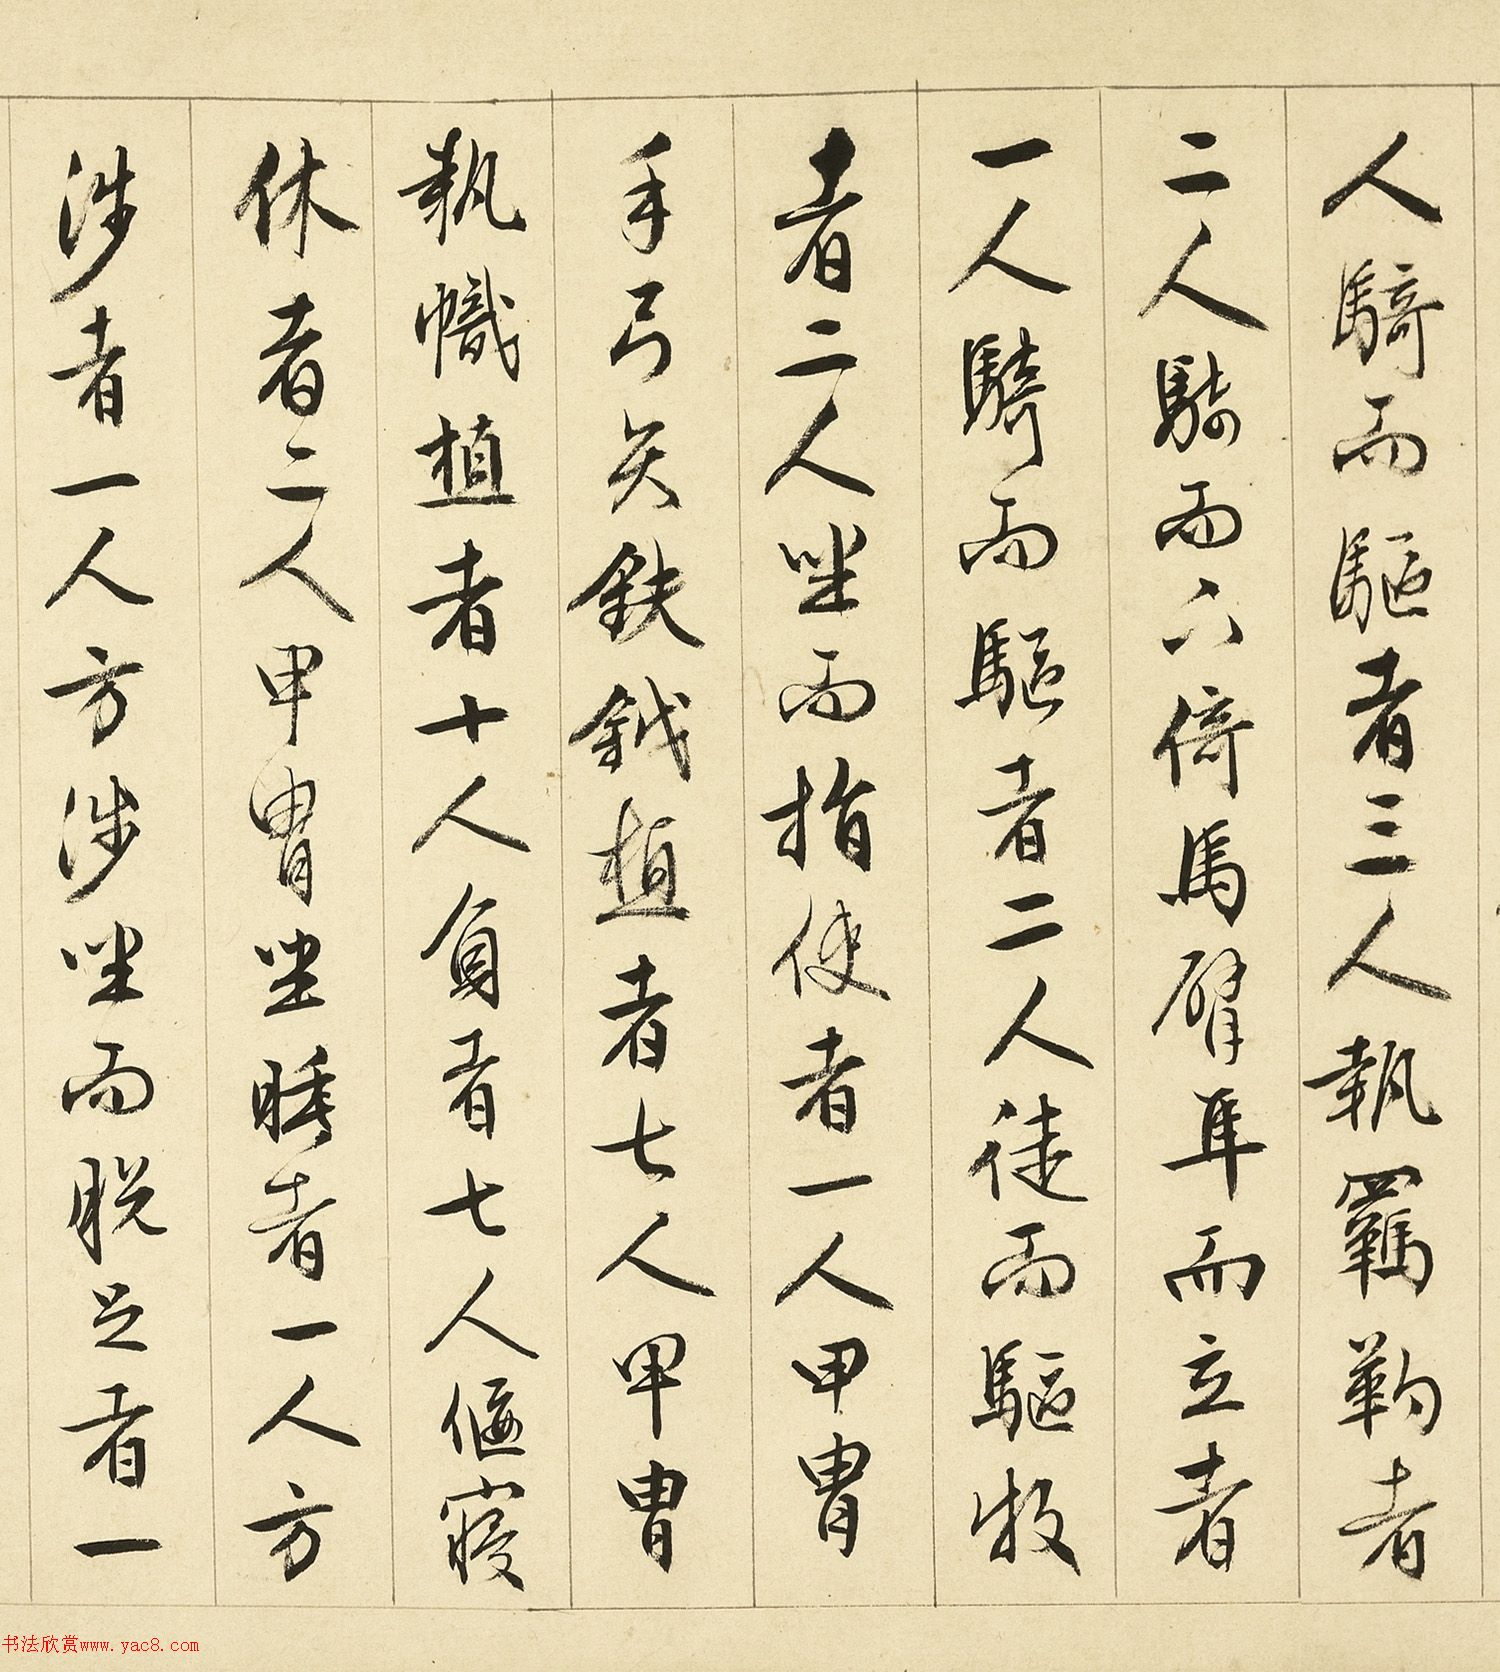 人騎而驅者三人執羈勒者
二人騎而下倚馬臂隼而立者
一人騎而驅者二人徒而驅牧
者二人坐而指使者一人甲冑
手弓矢鈇鉞植者七人甲冑
執幟植者十人負者七人偃寢
休者二人甲冑坐睡者一人方
涉者一人方涉坐而脫足者一
书法欣赏www.yac8.com